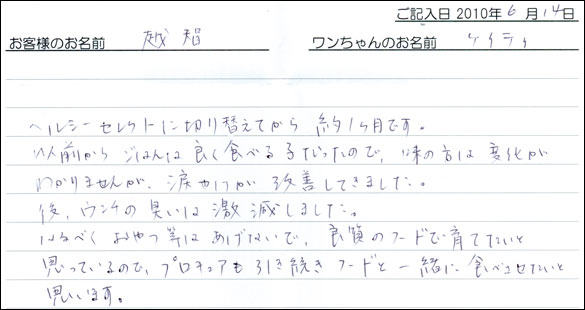 ご記入日 2010年6月14日
お客様のお名前 越智 ワンちゃんのお名前 ケイティ
ヘルシーセレクトに切り替えてから 約1ヶ月です。
以前から ごはんは良く食べる子だったので、味の方は変化が
わかりませんが、涙やけが 改善してきました。
後、ウンチの臭いは激減しました。
なるべく おやつ等は あげないで、良質のフードで育てたいと
思っているので、プロキュアも引き続きフードと一緒に食べさせたいと
思います。